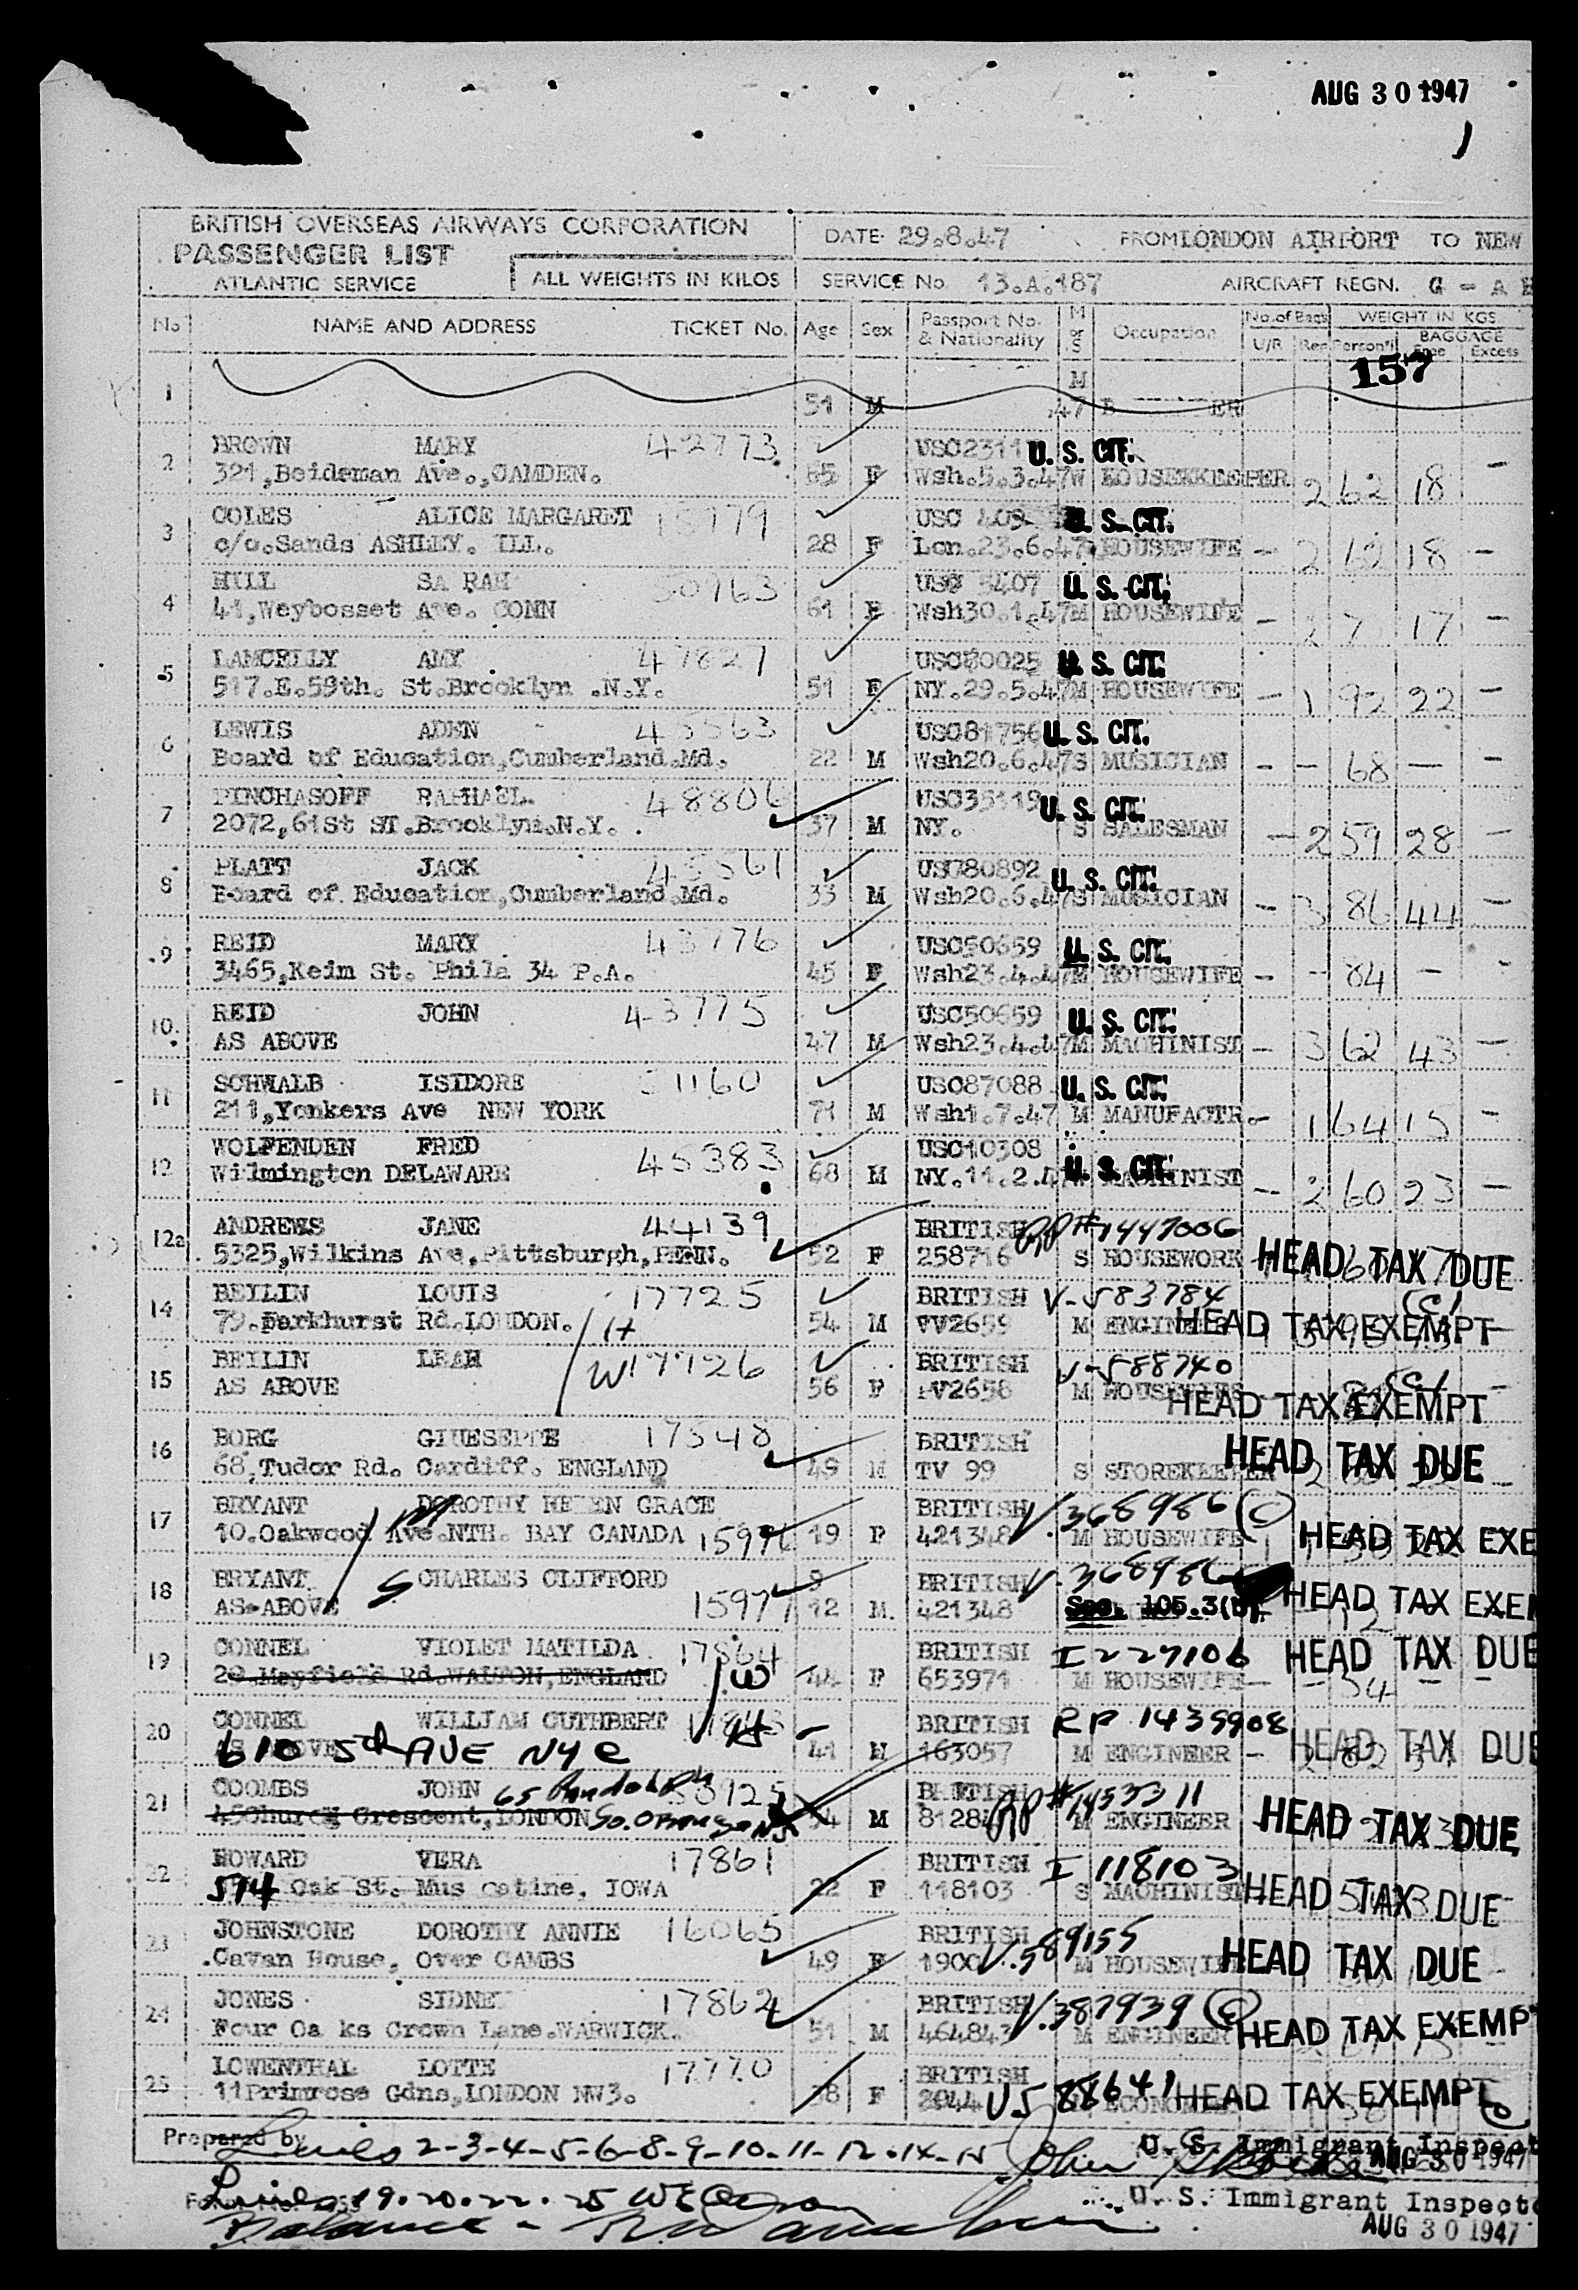 AUG 30 1947
BRITISH OVERSEAS AIRWAYS CORPORATION
PASSENGER LIST
ATLANTIC SERVICE
ALL WEIGHTS IN KILOS
DATE 29.8.47 FROM LONDON AIRPORT TO NEW
SERVICE No. 13.A.187 AIRCRAFT REGN. G - A
No NAME AND ADDRESS TICKET No. Age Sex Passport No. & Nationality M or S Occupation No. of Bags U/R Reg WEIGHT IN KGS Person'l BAGGAGE Free Excess
157
1 51 M M 47
2 BROWN MARY 42773 U. S. CIT.
321,Beideman Ave.,CAMDEN. 65 F Wsh.5.3.47W HOUSEKKEEPER 2 62 18 -
3 COLES ALICE MARGARET USC U. S. CIT.
c/o.Sands ASHLEY. ILL. 28 F Lon.23.6.47 HOUSEWIFE - 2 18 -
4 HILL SARAH 50963 U. S. CIT.
41,Weybosset Ave. CONN 61 F Wsh30.1.47M HOUSEWIFE - 17 -
5 AMY 47827 USC80025 U. S. CIT.
517.E.59th. St.Brooklyn .N.Y. 51 F NY.29.5.47M HOUSEWIFE - 1 92 22 -
6 LEWIS ADEN 45563 USC81756 U. S. CIT.
Board of Education,Cumberland.Md. 22 M Wsh20.6.47S MUSICIAN - - 68 - -
7 PINCHASOFF RAPHAEL. 48806 USC35119 U. S. CIT.
2072,61St ST.Brooklyn.N.Y. 37 M NY. S SALESMAN - 2 59 28 -
8 PLATT JACK 45561 USC80892 U. S. CIT.
Board of Education,Cumberland.Md. 33 M Wsh20.6.47S MUSICIAN - 3 86 44 -
9 REID MARY 43776 USC50659 U. S. CIT.
3465,Keim St. Phila 34 P.A. 45 F Wsh23.4.47M HOUSEWIFE - - 84 - -
10. REID JOHN 43775 USC50659 U. S. CIT.
AS ABOVE 47 M Wsh23.4.47M MACHINIST - 3 62 43 -
11 SCHWALB ISIDORE 51160 USC87088 U. S. CIT.
211,Yonkers Ave NEW YORK 71 M Wsh1.7.47 M MANUFACTR. - 1 64 15 -
12 WOLFENDEN FRED 45383 USC10308 U. S. CIT.
Wilmington DELAWARE 68 M NY.11.2.47 MACHINIST - 2 60 23 -
12a ANDREWS JANE 44139 BRITISH RP# 1447006
5325,Wilkins Ave,Pittsburgh,PENN. 52 F 258716 S HOUSEWORK HEAD TAX DUE
14 BEILIN LOUIS 17725 BRITISH V-583784 (C)
79.Parkhurst Rd.LONDON. H 54 M VV2659 M ENGINEER HEAD TAX EXEMPT
15 BEILIN LEAH W 17726 BRITISH V-588740 (C)
AS ABOVE 56 F M HOUSEWIFE HEAD TAX EXEMPT
16 BORG GIUESEPPE 17548 BRITISH
68,Tudor Rd. Cardiff. ENGLAND 49 M TV 99 S STOREKEEPER HEAD TAX DUE
17 BRYANT DOROTHY HELEN GRACE BRITISH V.368986 (C)
10.Oakwood Ave.NTH. BAY CANADA 15976 19 F 421348 M HOUSEWIFE HEAD TAX EXE
18 BRYANT S CHARLES CLIFFORD 9 BRITISH V.368986
AS ABOVE 15977 12 M. 421348 Sec. 105.3(b). HEAD TAX EXE
19 CONNEL VIOLET MATILDA 17864 BRITISH I 227106 HEAD TAX DUE
20.Mayfield Rd.WALTON,ENGLAND W 44 F 653971 M HOUSEWIFE - - 54 - -
20 CONNEL WILLIAM CUTHBERT H BRITISH RP 1439908
AS ABOVE 610 5th AVE NYC 41 M 163057 M ENGINEER - HEAD TAX DUE
21 COOMBS JOHN 65 Randolph BRITISH RP# 1453311
Church Crescent,LONDON So. Orange NJ 54 M M ENGINEER HEAD TAX DUE
22 HOWARD VERA 17861 BRITISH I 118103
594 Oak St. Muscatine, IOWA 22 F 118103 S MACHINIST HEAD TAX DUE
23 JOHNSTONE DOROTHY ANNIE 16065 BRITISH V.589155
Cavan House, Over CAMBS 49 F M HOUSEWIFE HEAD TAX DUE
24 JONES SIDNEY 17862 BRITISH V.387939 (C)
Four Oa ks Crown Lane.WARWICK. 51 M 464843 M ENGINEER HEAD TAX EXEMPT
25 LOWENTHAL LOTTE 17770 BRITISH
11Primrose Gdns,LONDON NW3. 38 F V588641 HEAD TAX EXEMPT C
Prepared by Lines 2-3-4-5-6-8-9-10-11-12-14-15 John U. S. Immigrant Inspect
AUG 30 1947
Lines 19.20.22.25 U. S. Immigrant Inspecto
Balance - AUG 30 1947